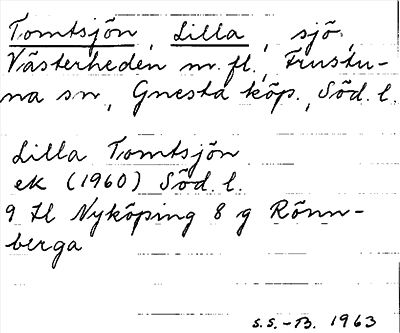 Tomtsjön, Lilla, sjö,
Västerheden m. fl., Frustu-
na sn, Gnesta köp., Söd. l.
Lilla Tomtsjön
ek (1960) Söd. l.
9 H Nyköping 8 g Rönn-
berga
S.S.-B. 1963